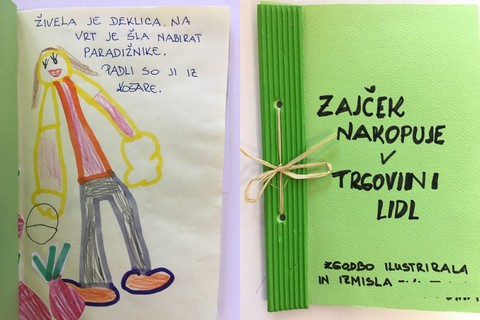 ŽIVELA JE DEKLICA. NA
VRT JE ŠLA NABIRAT
PARADIŽNIKE.
PADLI SO JI IZ
KOŠARE.
ZAJČEK
NAKOPUJE
V
TRGOVINI
LIDL
ZGODBO ILUSTRIRALA
IN IZMISLA